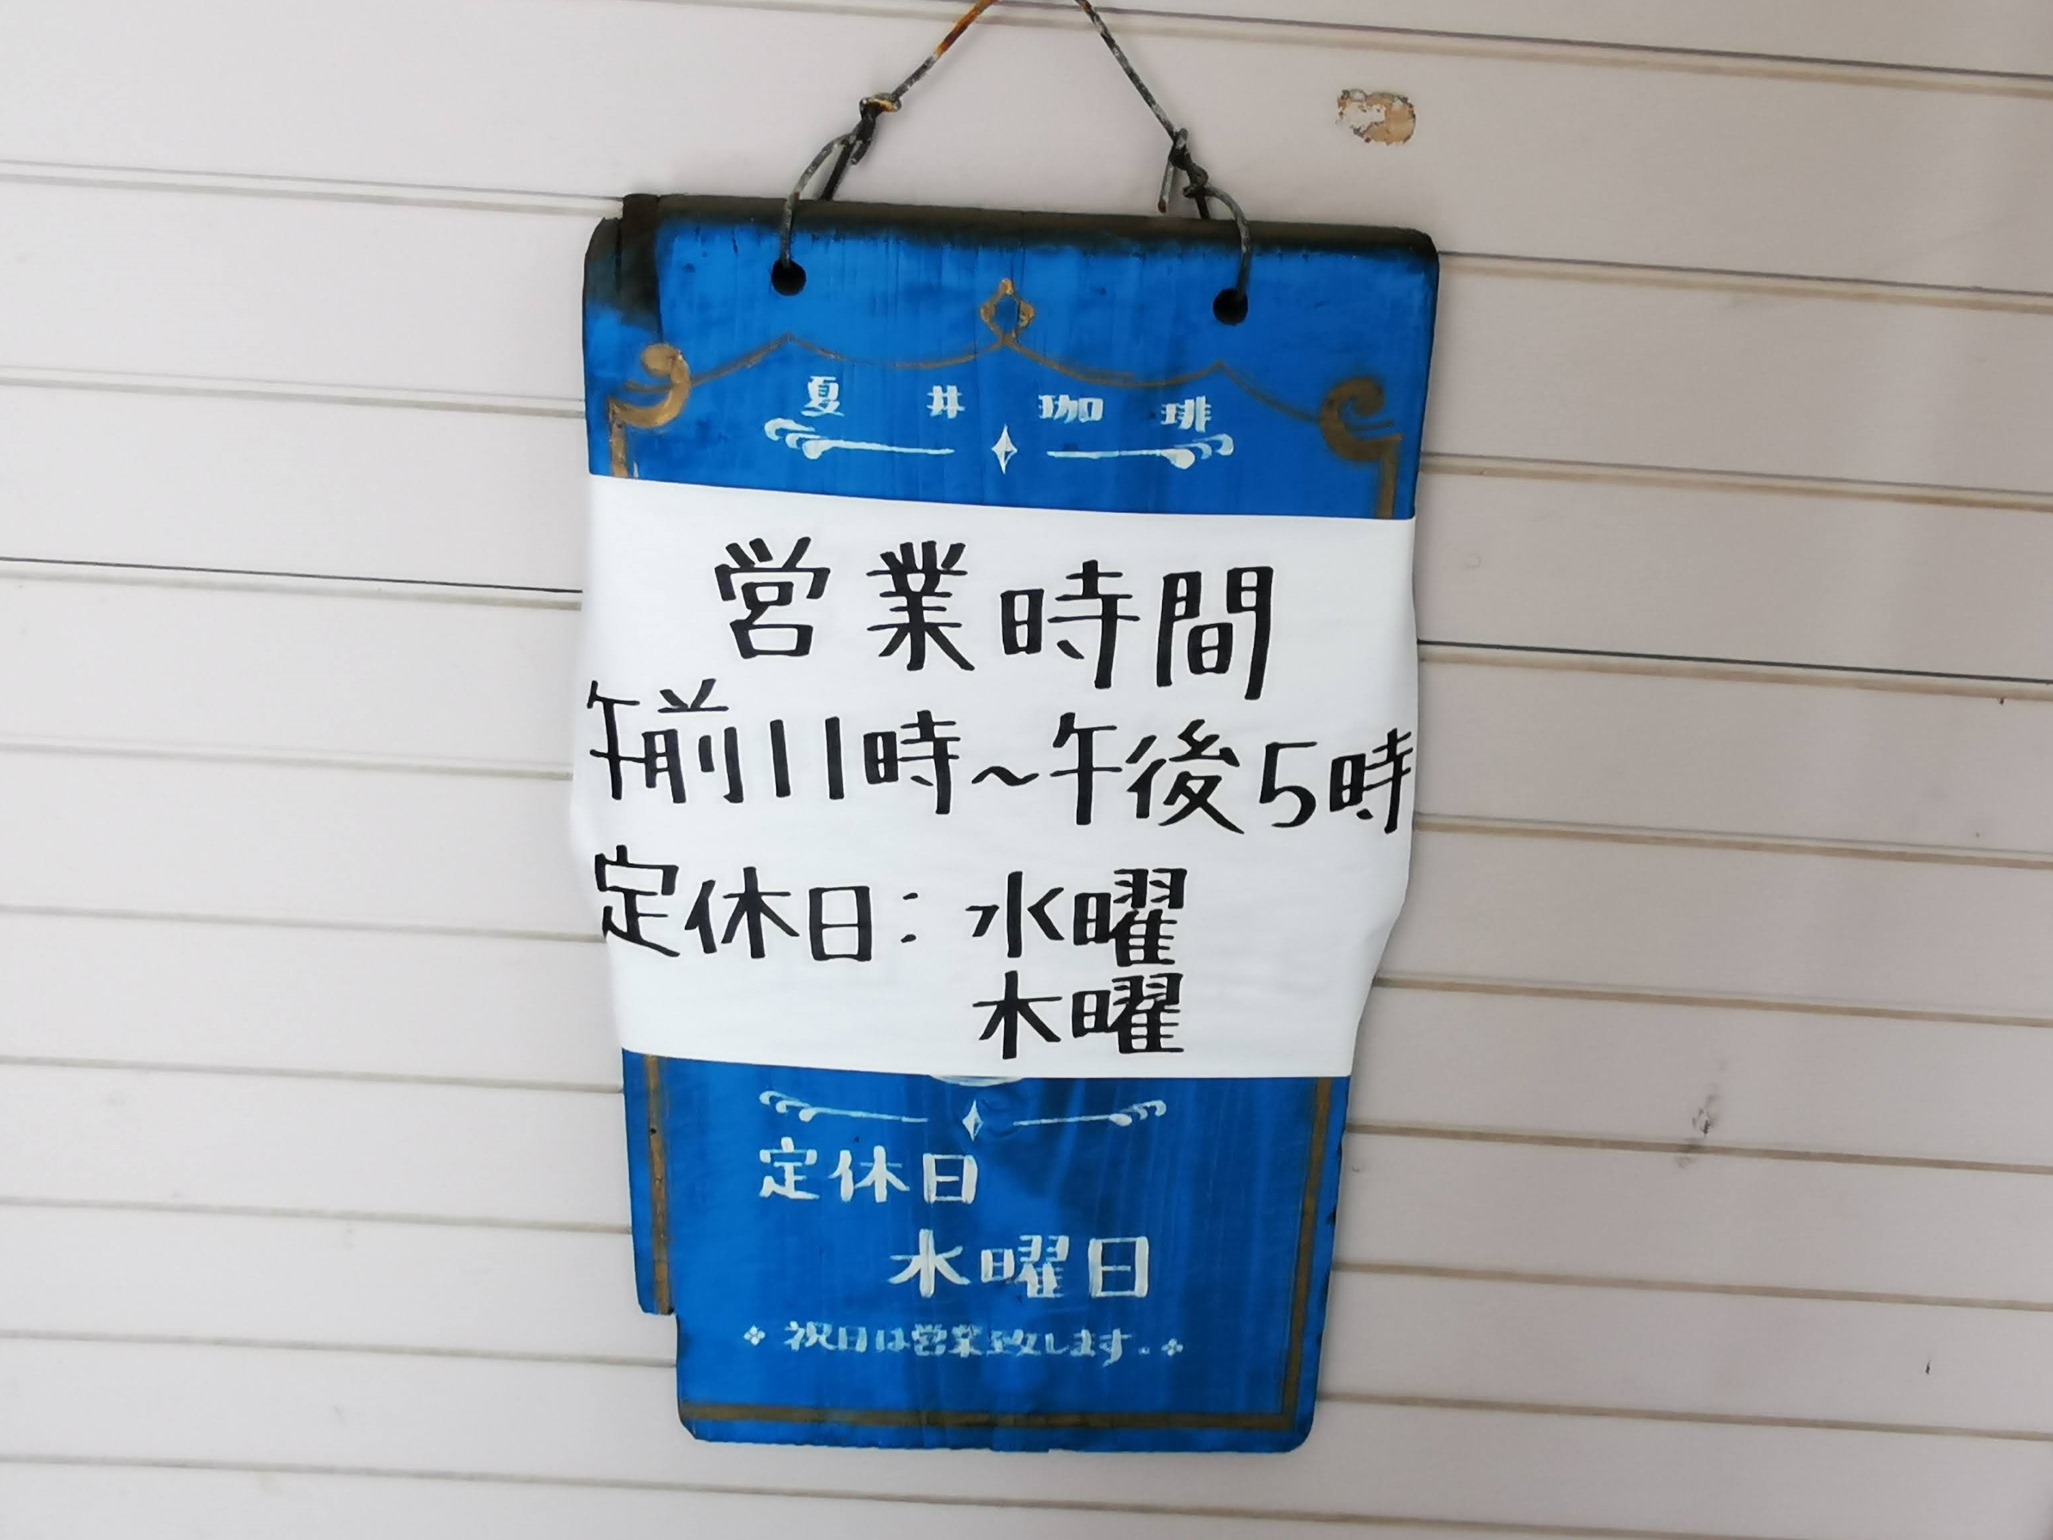 夏井珈琲
営業時間
午前11時～午後5時
定休日：水曜
木曜
定休日
水曜日
祝日は営業致します.